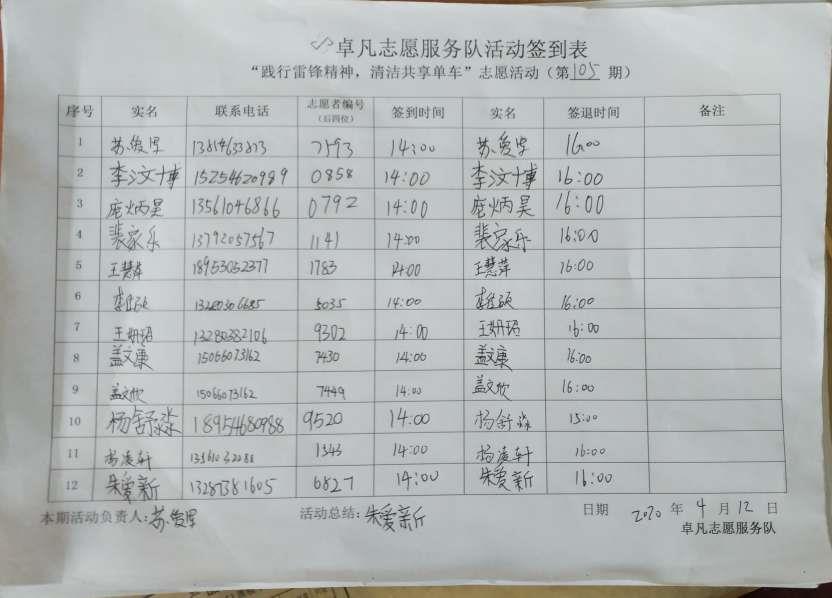 卓凡志愿服务队活动签到表
“践行雷锋精神，清洁共享单车”志愿活动（第105期）
序号 实名 联系电话 志愿者编号（后四位） 签到时间 实名 签退时间 备注
1 苏爱军 7593 14:00 苏爱军 16:00
2 李汶博 15254620989 0858 14:00 李汶博 16:00
3 庞炳昊 13561046866 0792 14:00 庞炳昊 16:00
4 裴家乐 13792057567 1141 14:00 裴家乐 16:00
5 王慧萍 18953052377 1783 14:00 王慧萍 16:00
6 5035 14:00 16:00
7 王妍珺 13280382106 9302 14:00 王妍珺 16:00
8 盖文康 15066073162 7430 14:00 盖文康 16:00
9 盖文欣 15066073162 7449 14:00 盖文欣 16:00
10 杨舒淼 18954680988 9520 14:00 杨舒淼 15:00
11 杨凌轩 1343 14:00 杨凌轩 16:00
12 朱爱新 13287381605 6827 14:00 朱爱新 16:00
本期活动负责人：苏爱军 活动总结：朱爱新 日期 2020年4月12日
卓凡志愿服务队